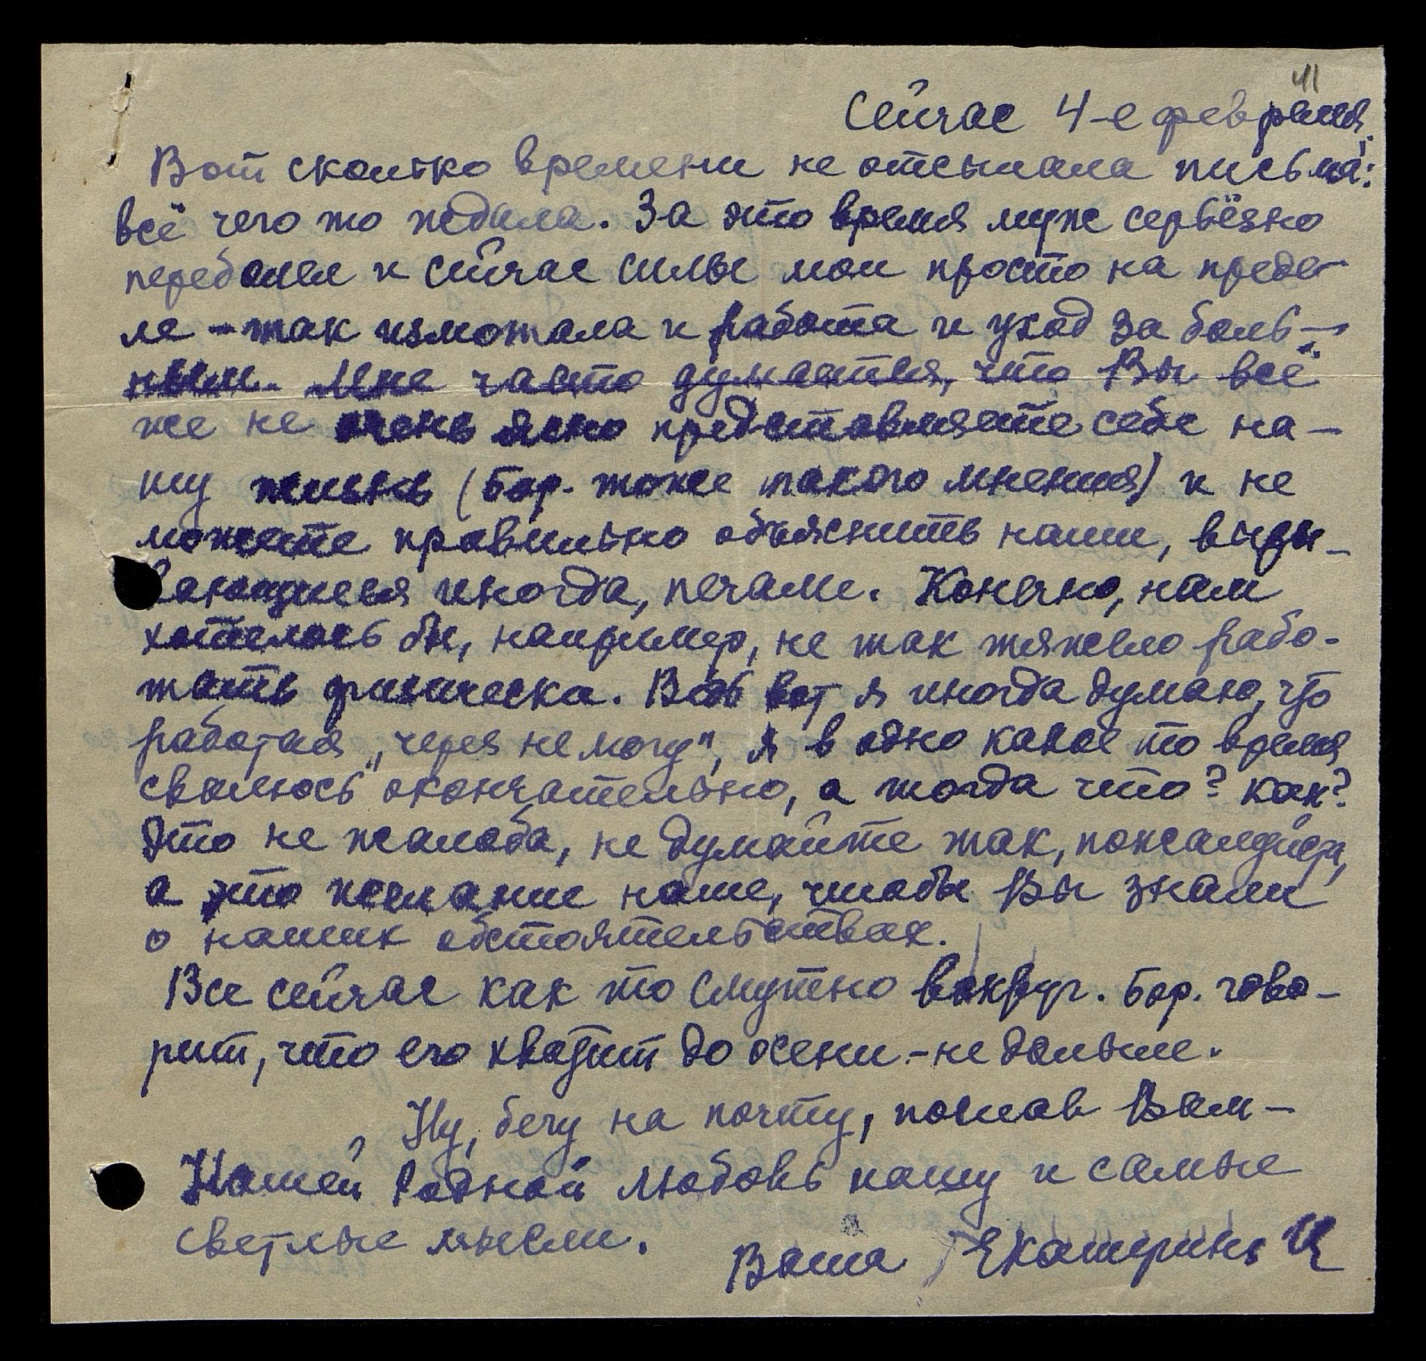 41
Сейчас 4-е февраля.
Вот сколько времени не отсылала письма:
всё чего то ждала. За это время муж серьёзно
переболел и сейчас силы мои просто на преде-
ле – так измотала и работа и уход за боль-
ным. Мне часто думается, что Вы всё
же не очень ясно представляете себе на-
шу жизнь (Бор. тоже такого мнения) и не
можете правильно объяснить наши, выры-
вающиеся иногда, печали. Конечно, нам
хотелось бы, например, не так тяжело рабо-
тать физически. Ведь вот я иногда думаю, что
работая „через не могу", я в одно какое то время
„свалюсь" окончательно, а тогда что? как?
Это не жалоба, не думайте так, пожалуйста,
а это желание наше, чтобы Вы знали
о наших обстоятельствах.
Все сейчас как то смутно вокруг. Бор. гово-
рит, что его хватит до осени – не дольше.
Ну, бегу на почту, послав Вам –
Нашей Родной любовь нашу и самые
светлые мысли.
Ваша Екатерина И